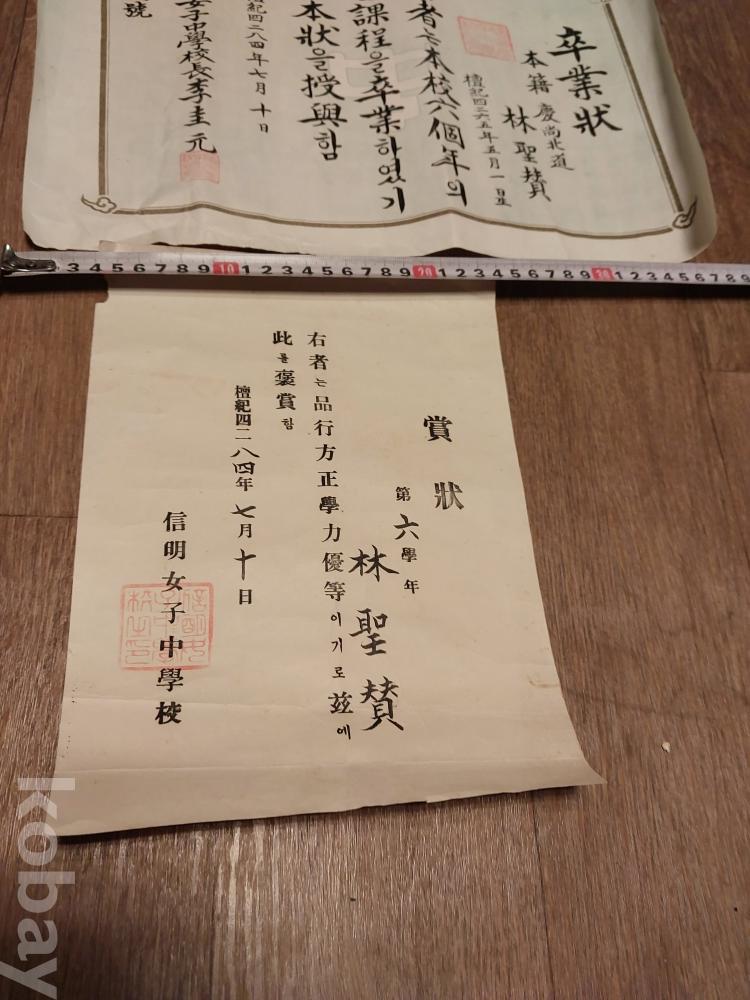 卒業狀
本籍 慶尚北道
林聖賛
檀紀四二六五年五月一日生
者는本校六個年의
課程을卒業하였기
本狀을授與함
紀四二八四年七月十日
女子中學校長李圭元
號
3 4 5 6 7 8 9 10 1 2 3 4 5 6 7 8 9 20 1 2 3 4 5 6 7 8 9 30 1 2 3 4 5 6 7 8 9
賞狀
第六學年
林聖賛
右者는品行方正學力優等이기로玆에
此를褒賞함
檀紀四二八四年七月十日
信明女子中學校
kobay